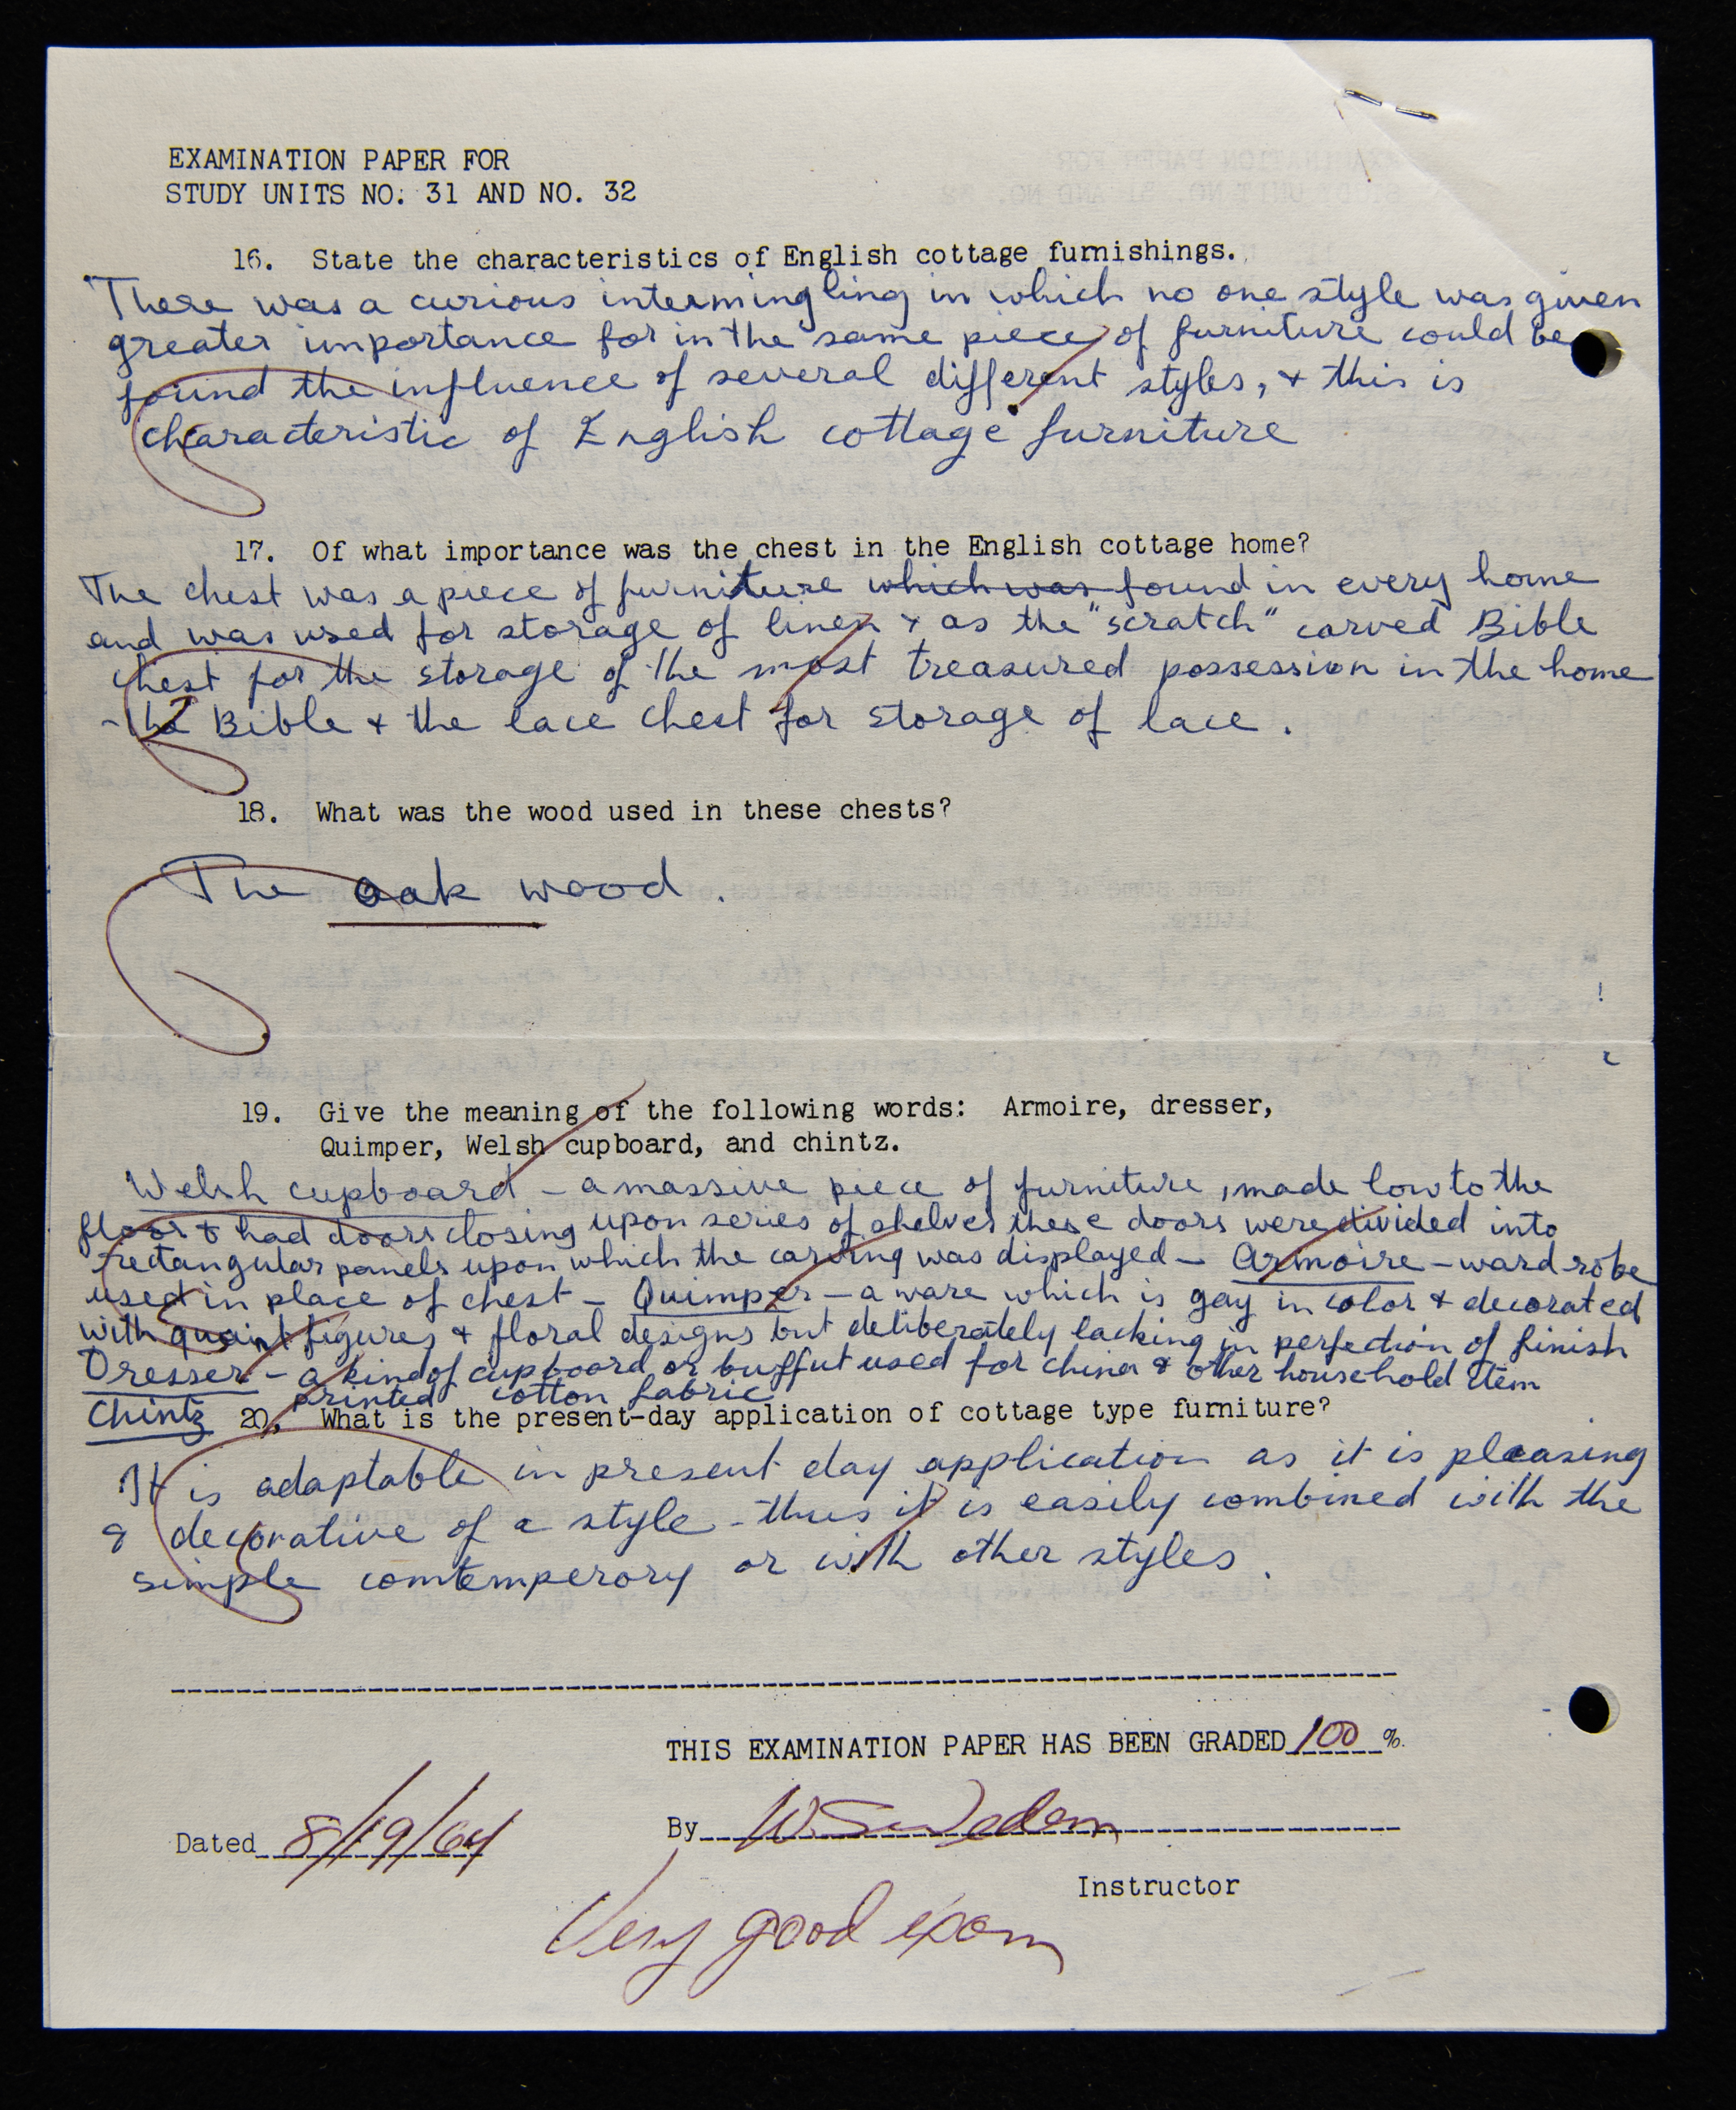 EXAMINATION PAPER FOR
STUDY UNITS NO. 31 AND NO. 32
16. State the characteristics of English cottage furnishings.
There was a curious intermingling in which no one style was given
greater importance for in the same piece of furniture could be
found the influence of several different styles, & this is
characteristic of English cottage furniture
17. Of what importance was the chest in the English cottage home?
The chest was a piece of furniture which was found in every home
and was used for storage of linen & as the "scratch" carved Bible
chest for the storage of the most treasured possession in the home
- the Bible & the lace chest for storage of lace.
18. What was the wood used in these chests?
The oak wood.
19. Give the meaning of the following words: Armoire, dresser,
Quimper, Welsh cupboard, and chintz.
Welsh cupboard - a massive piece of furniture, made low to the
floor & had doors closing upon series of shelves these doors were divided into
rectangular panels upon which the carving was displayed - Armoire - ward-robe
used in place of chest - Quimper - a ware which is gay in color & decorated
with quaint figures & floral designs but deliberately lacking in perfection of finish
Dresser - a kind of cupboard or buffut used for china & other household item
Chintz printed cotton fabric
20. What is the present-day application of cottage type furniture?
It is adaptable in present day application as it is pleasing
& decorative of a style - thus it is easily combined with the
simple comtemperory or with other styles.
THIS EXAMINATION PAPER HAS BEEN GRADED 100 %.
Dated 8/19/64
By
Instructor
Very good exam